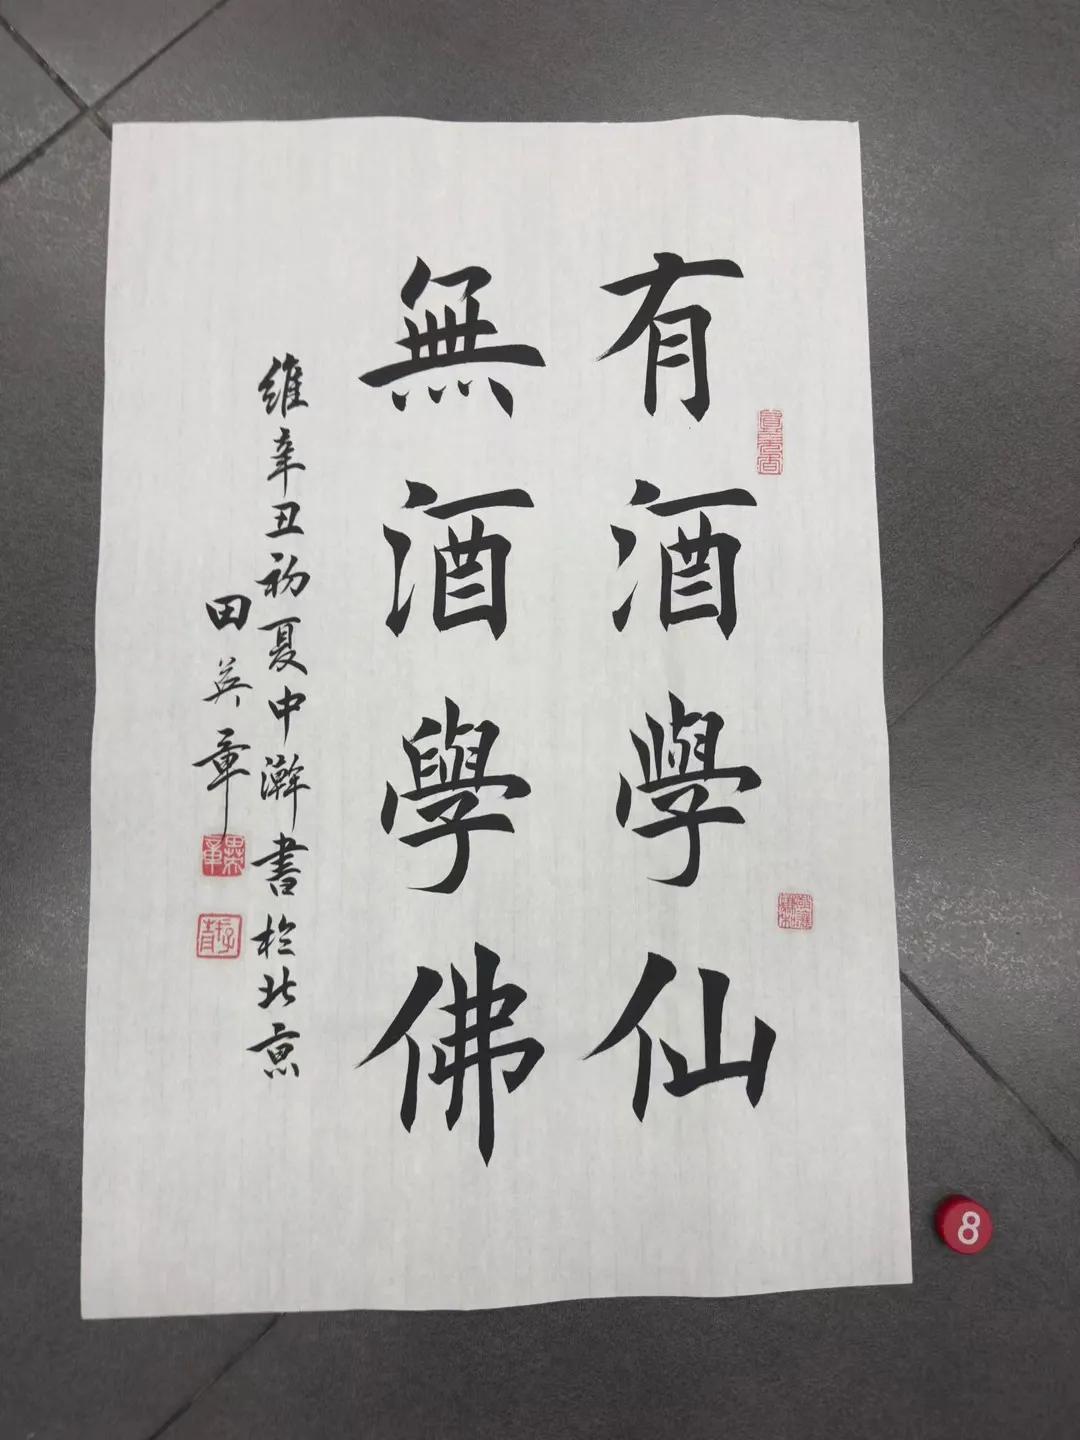 有酒學仙
無酒學佛
維辛丑初夏中澣書於北京
田英章
8